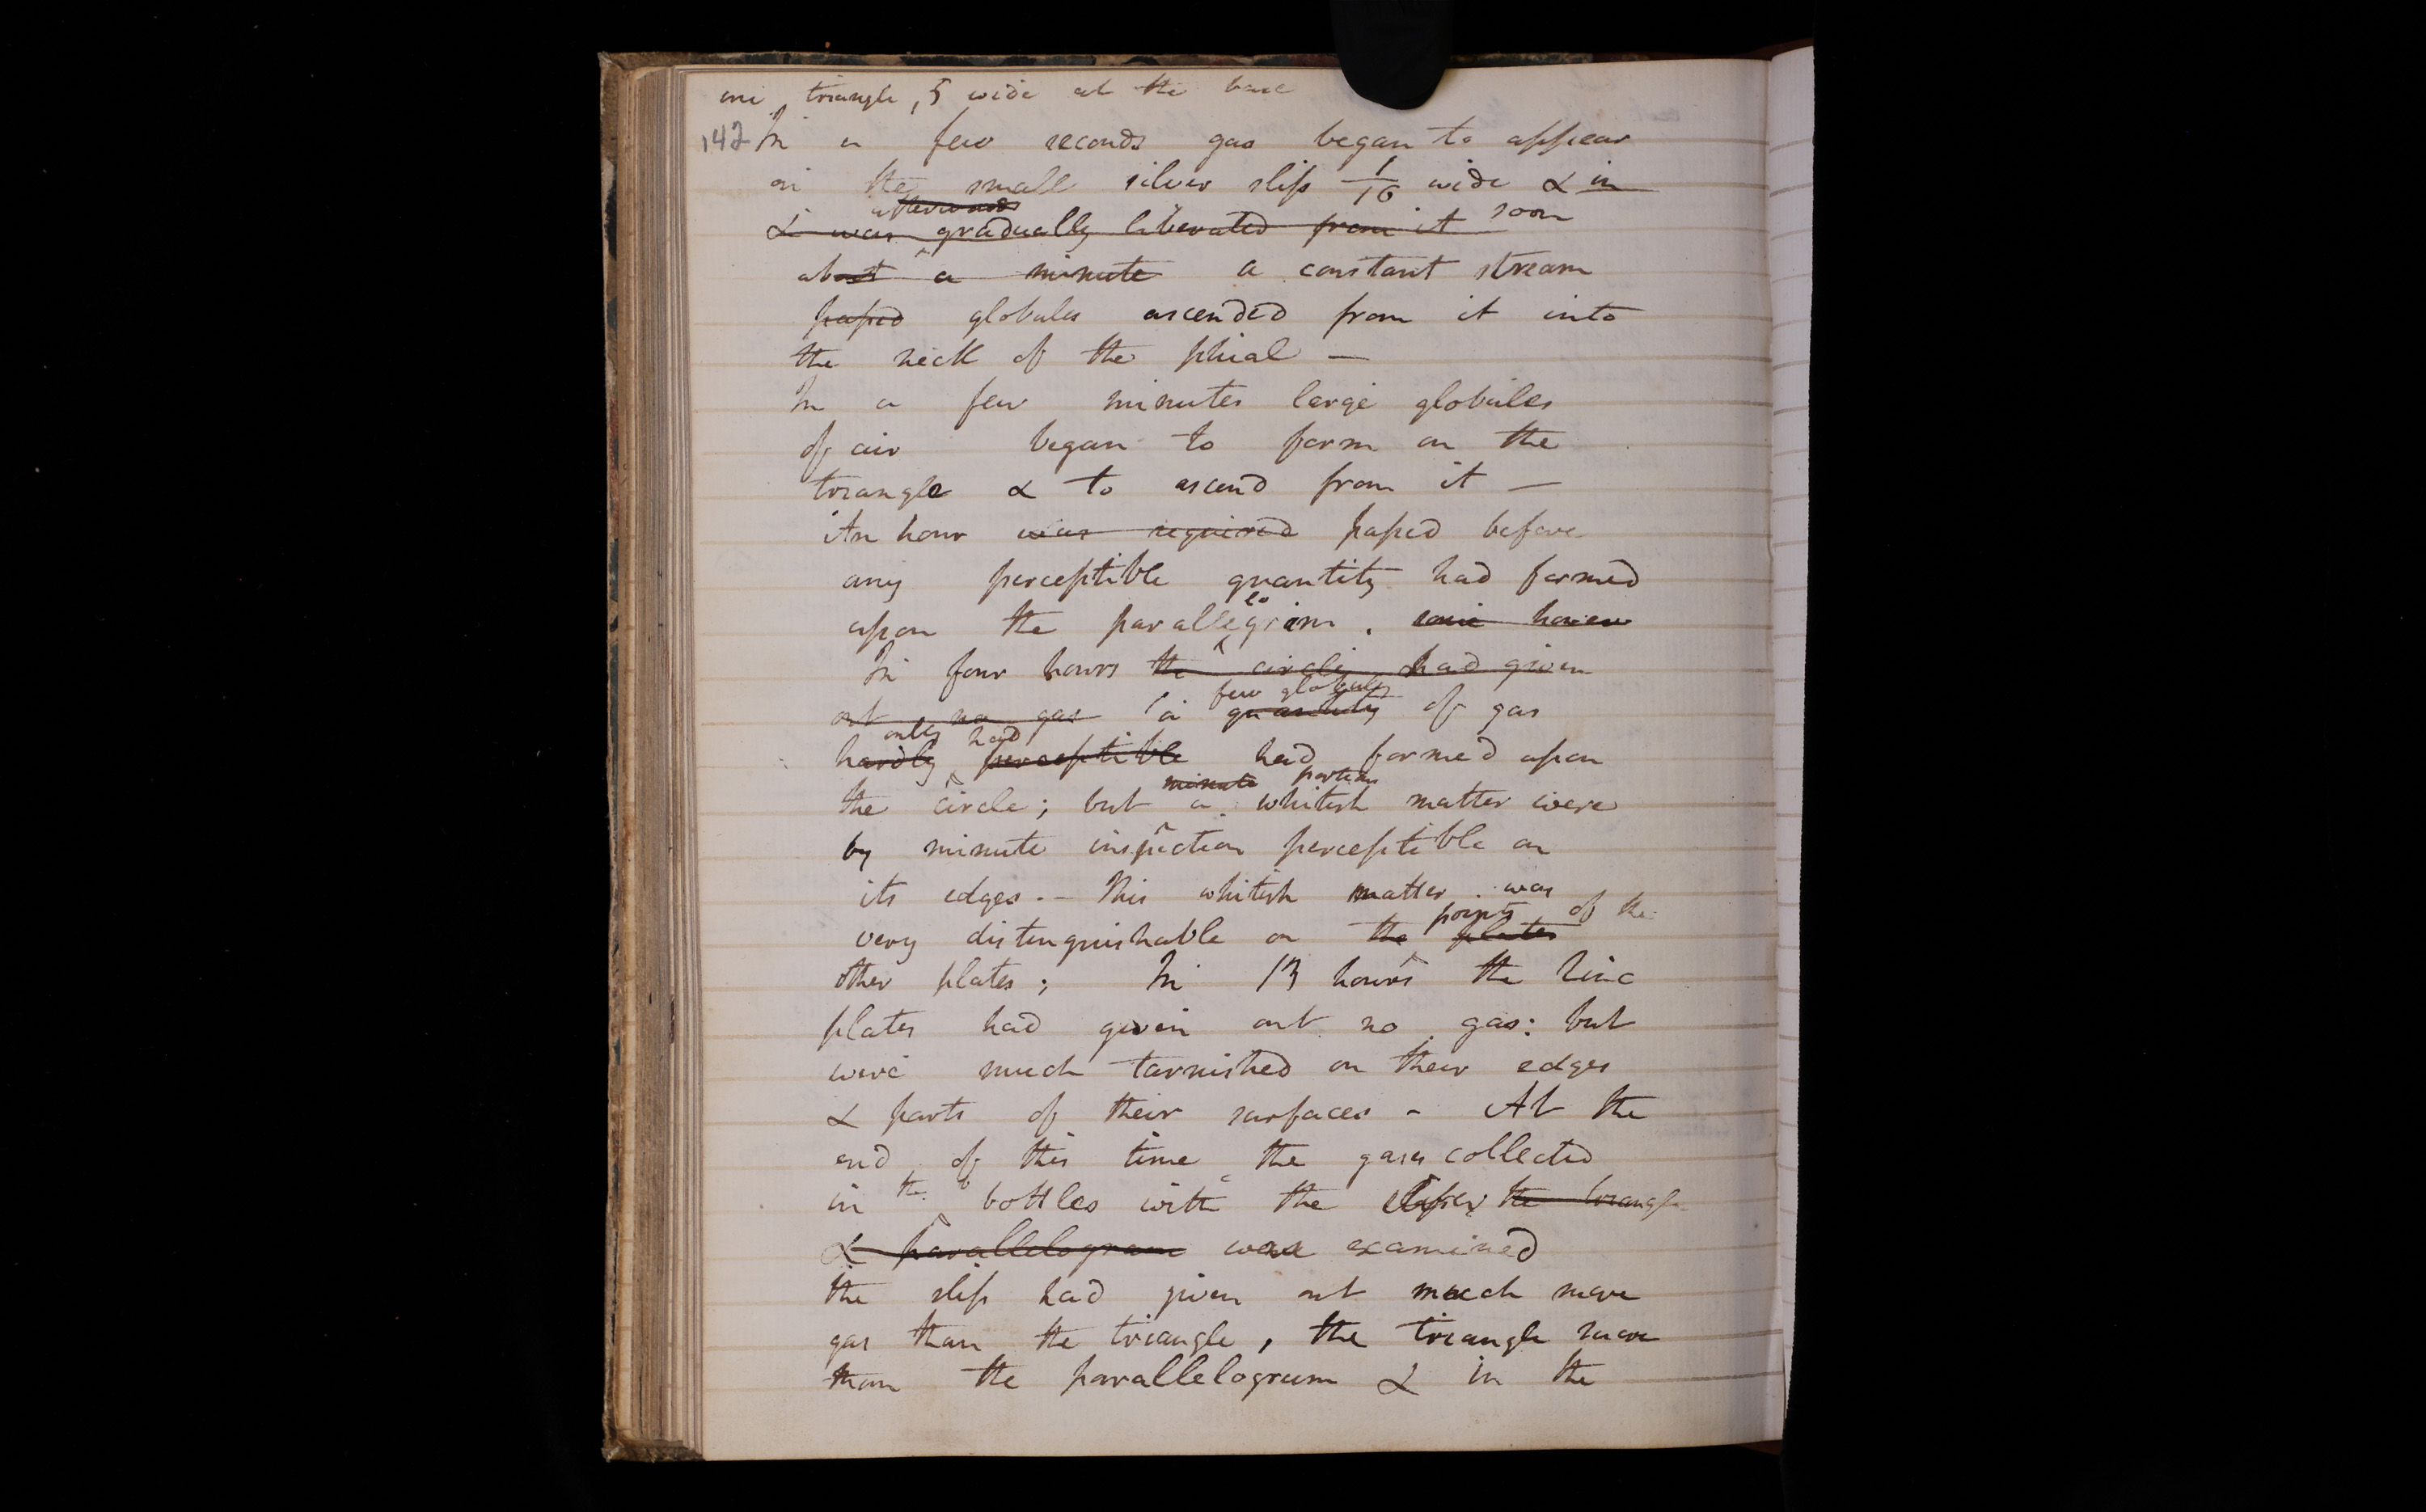 one triangle, 5 wide at the base
142 In a few seconds gas began to appear
on the small silver slip 1/10 wide & in
afterwards
& was gradually liberated from it soon
about a minute a constant stream
passed globules ascended from it into
the neck of the phial —
In a few minutes large globules
of air began to form on the
triangle & to ascend from it —
An hour was required passed before
any perceptible quantity had formed
lo
upon the parallegram. some hours
In four hours the circle had given
few globules
out no gas a quantity of gas
only had
hardly perceptible had formed upon
minute portion
the circle; but a whitish matter were
by minute inspection perceptible on
its edges. — This whitish matter was
points of the
very distinguishable on the plates
other plates; In 13 hours the Zinc
plates had given out no gas: but
were much tarnished on their edges
& parts of their surfaces - At the
end of this time the gases collected
the
in bottles with the the triangle
& parallelogram were examined
the slip had given out much more
gas than the triangle, the triangle more
than the parallelogram & in the